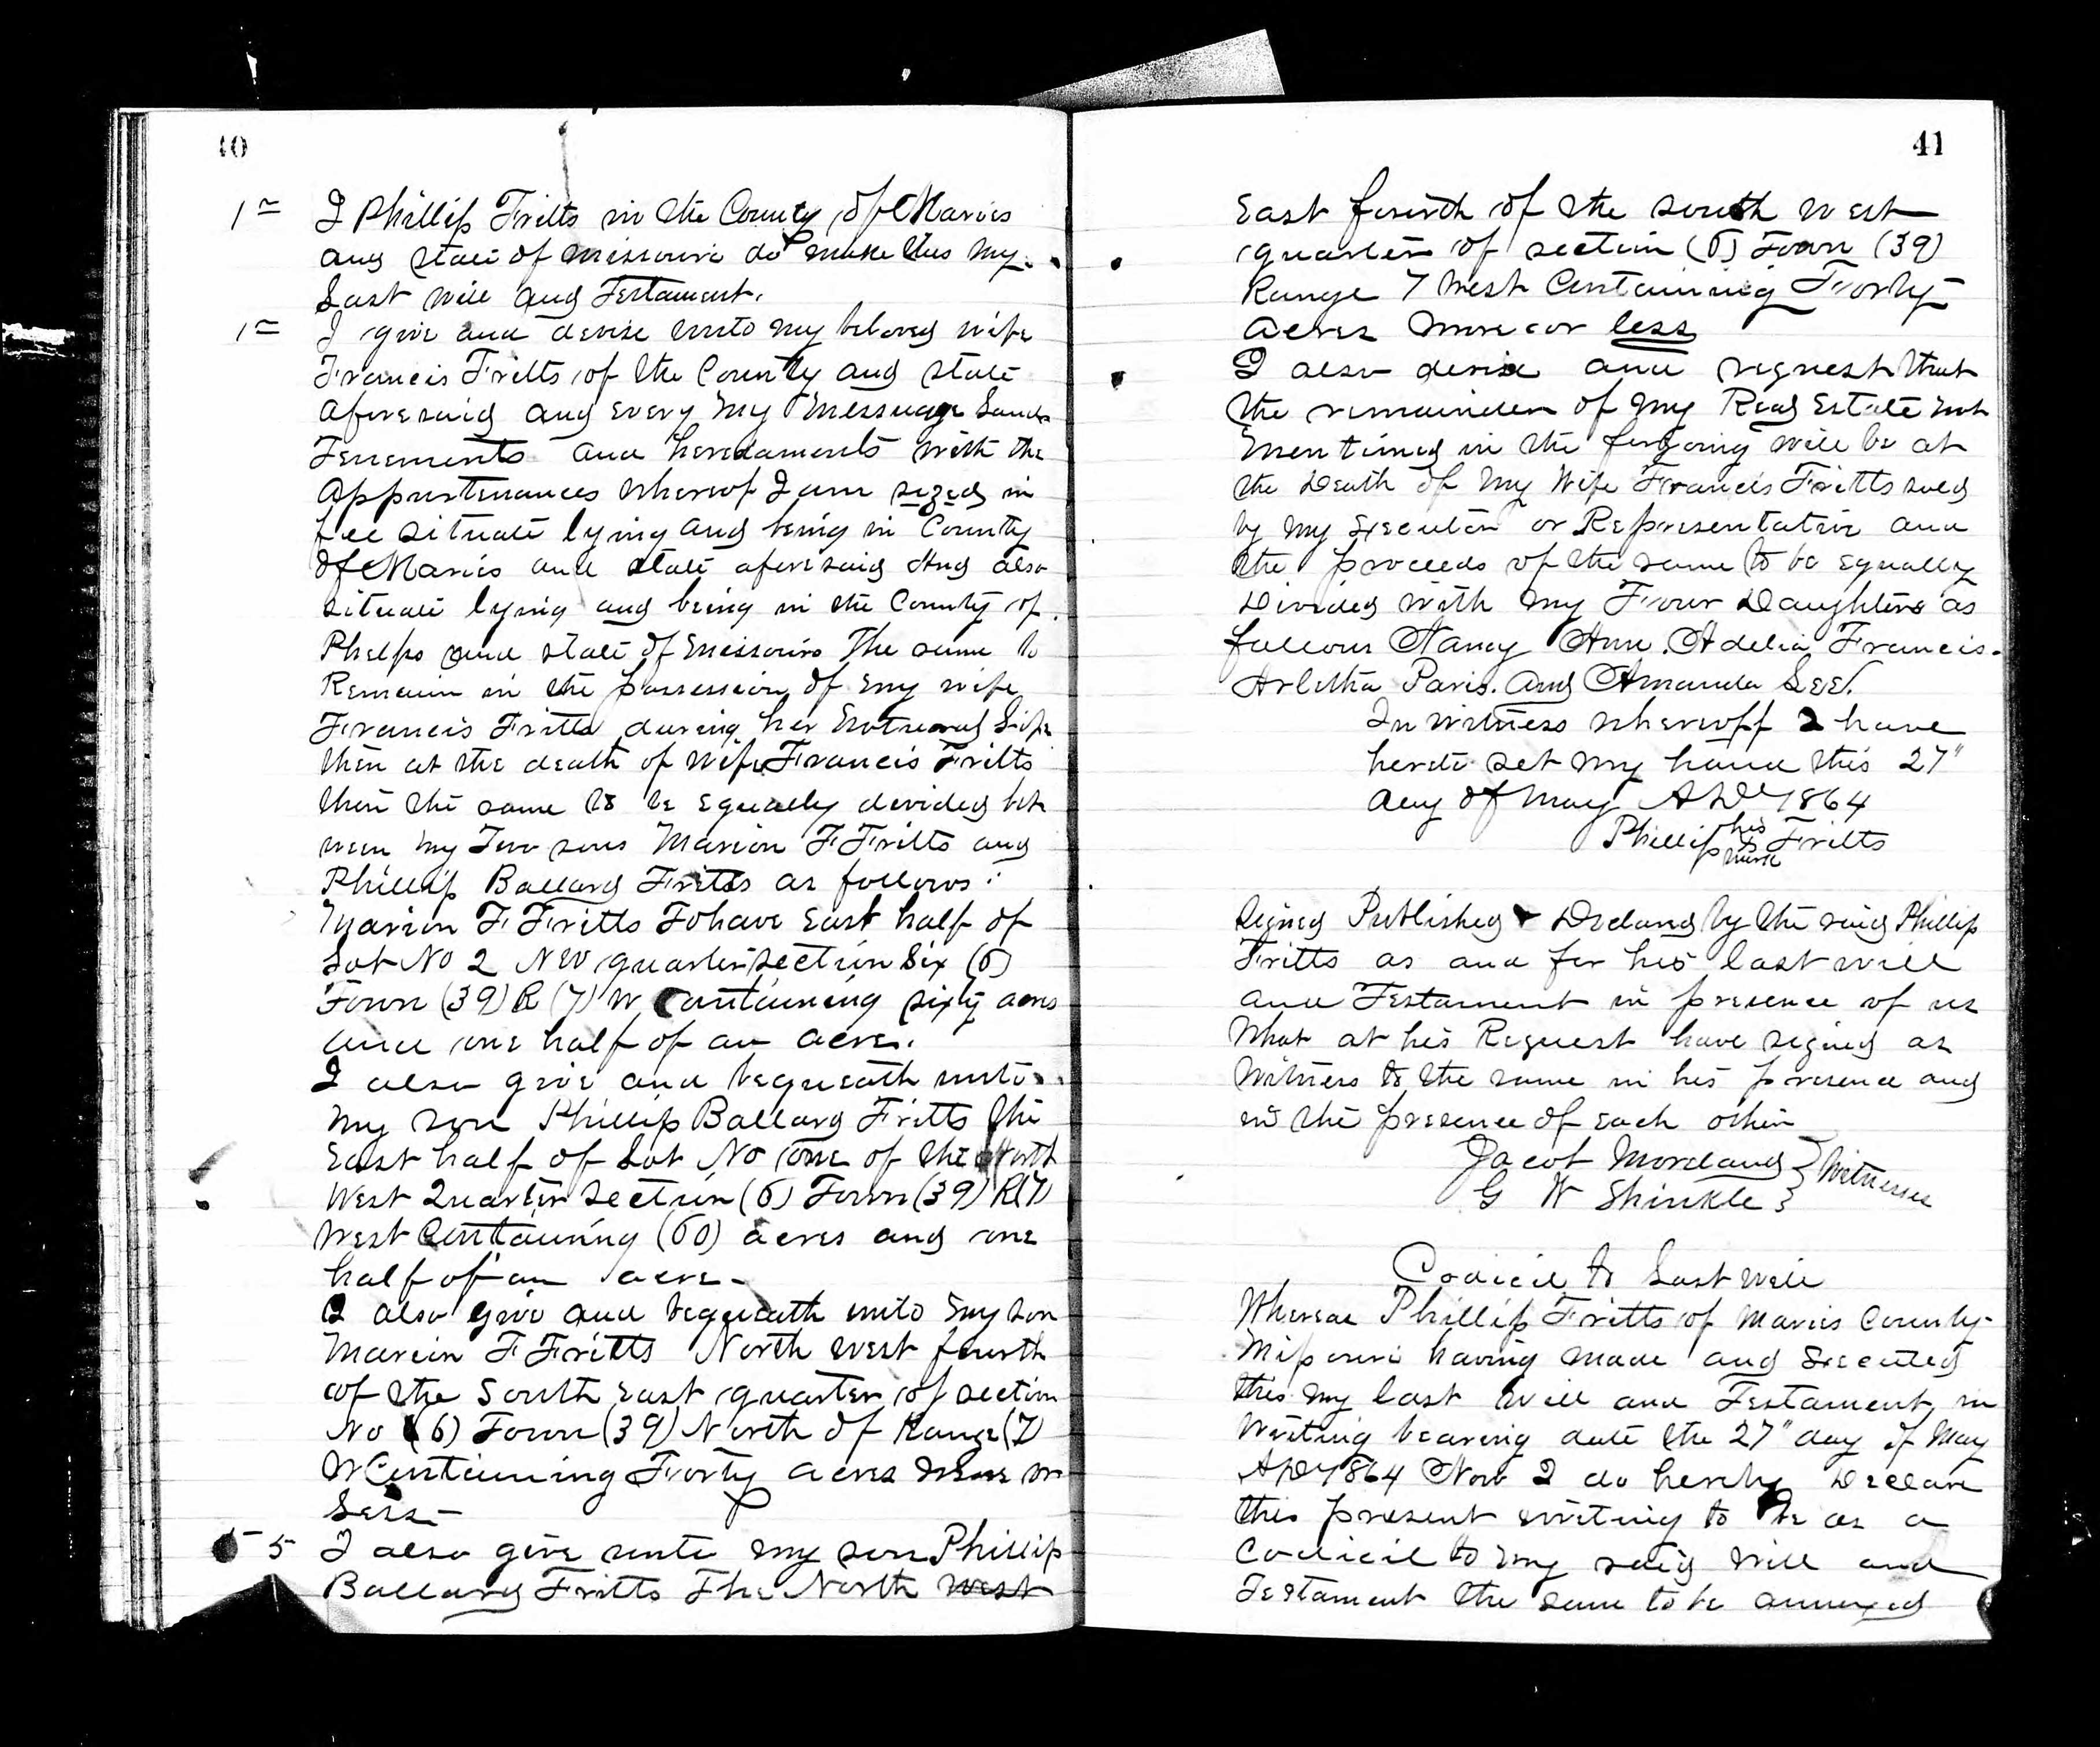 40
1st I Phillip Fritts in the County of Maries
and state of missouri do make this my
Last will and Testament.
1st I give and devise unto my beloved wife
Francis Fritts of the County and state
aforesaid and every my Messuage Lands
Tenements and heredaments with the
appurtenances whereof I am sezed in
fee situate lying and being in County
of Maries and state aforesaid And also
situate lying and being in the County of
Phelps and state of missouri The same to
Remain in the possession of my wife
Francis Fritts during her Natural Life
then at the death of wife Francis Fritts
then the same to be Equally divided bet
ween my Two sons Marion F Fritts and
Phillip Ballard Fritts as follows:
Marion F Fritts To have East half of
Lot No 2 NW quarter section Six (6)
Town (39) R (7) W Containing sixty acres
and one half of an acre.
I also give and bequeath unto
my son Phillip Ballard Fritts the
East half of Lot No one of the North
West Quarter Section (6) Town (39) R(7)
West Containing (60) acres and one
half of an acre-
I also give and bequeath unto my son
Marion F Fritts North west fourth
of the South East quarter of section
No (6) Town (39) North of Range (7)
W Containing Forty acres more or
Less-
5 I also give unto my son Phillip
Ballard Fritts The North west
41
East fourth of the south west
quarter of section (6) Town (39)
Range 7 West Containing Forty
acres more or less
I also devise and request that
the remainder of my Real Estate not
mentioned in the forgoing will be at
the Death of my Wife Francis Fritts sold
by my Executor or Representative and
the proceeds of the same to be Equally
Divided with my Four Daughters as
follows Nancy Ann. Adelia Francis.
Arletha Paris. and Amanda LEE.
In witness whereoff I have
hereto set my hand this 27"
day of May AD 1864
Phillip his mark Fritts
Signed Published & Declared by the said Phillip
Fritts as and for his last will
and Testament in presence of us
What at his Request have signed as
Witness to the same in his presence and
in the presence of Each other
Jacob Moreland } Witnesses
G W Shinkle }
Codicil to Last Will
Whereas Phillip Fritts of Maries County-
Missouri having made and Executed
this my last will and Testament in
Writing bearing date the 27" day of May
AD 1864 Now I do hereby Declare
this present writing to be as a
Codicil to my said Will and
Testament the same to be annexed